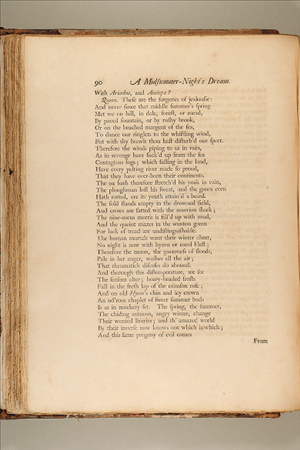 90 A Midsummer-Night's Dream.
With Ariadne, and Antiopa?
Queen. These are the forgeries of jealousie:
And never since that middle summer's spring
Met we on hill, in dale, forest, or mead,
By paved fountain, or by rushy brook,
Or on the beached margent of the sea,
To dance our ringlets to the whistling wind,
But with thy brawls thou hast disturb'd our sport.
Therefore the winds piping to us in vain,
As in revenge have suck'd up from the sea
Contagious fogs; which falling in the land,
Have every pelting river made so proud,
That they have over-born their continents.
The ox hath therefore stretch'd his yoak in vain,
The ploughman lost his sweat, and the green corn
Hath rotted, ere its youth attain'd a beard.
The fold stands empty in the drowned field,
And crows are fatted with the murrion flock;
The nine-mens morris is fill'd up with mud,
And the queint mazes in the wanton green
For lack of tread are undistinguishable.
The human mortals want their winter
No night is now with hymn or carol blest;
Therefore the moon, the governess of floods,
Pale in her anger, washes all the air;
That rheumatick diseases do abound.
And thorough this distemperature, we see
The seasons alter; hoary-headed frosts
Fall in the fresh lap of the crimson rose;
And on old Hyems' chin and icy crown
An od'rous chaplet of sweet summer buds
Is as in mockery set. The spring, the summer,
The chiding autumn, angry winter, change
Their wonted liveries; and th' amazed world
By their increase now knows not which is which;
And this same progeny of evil comes
From